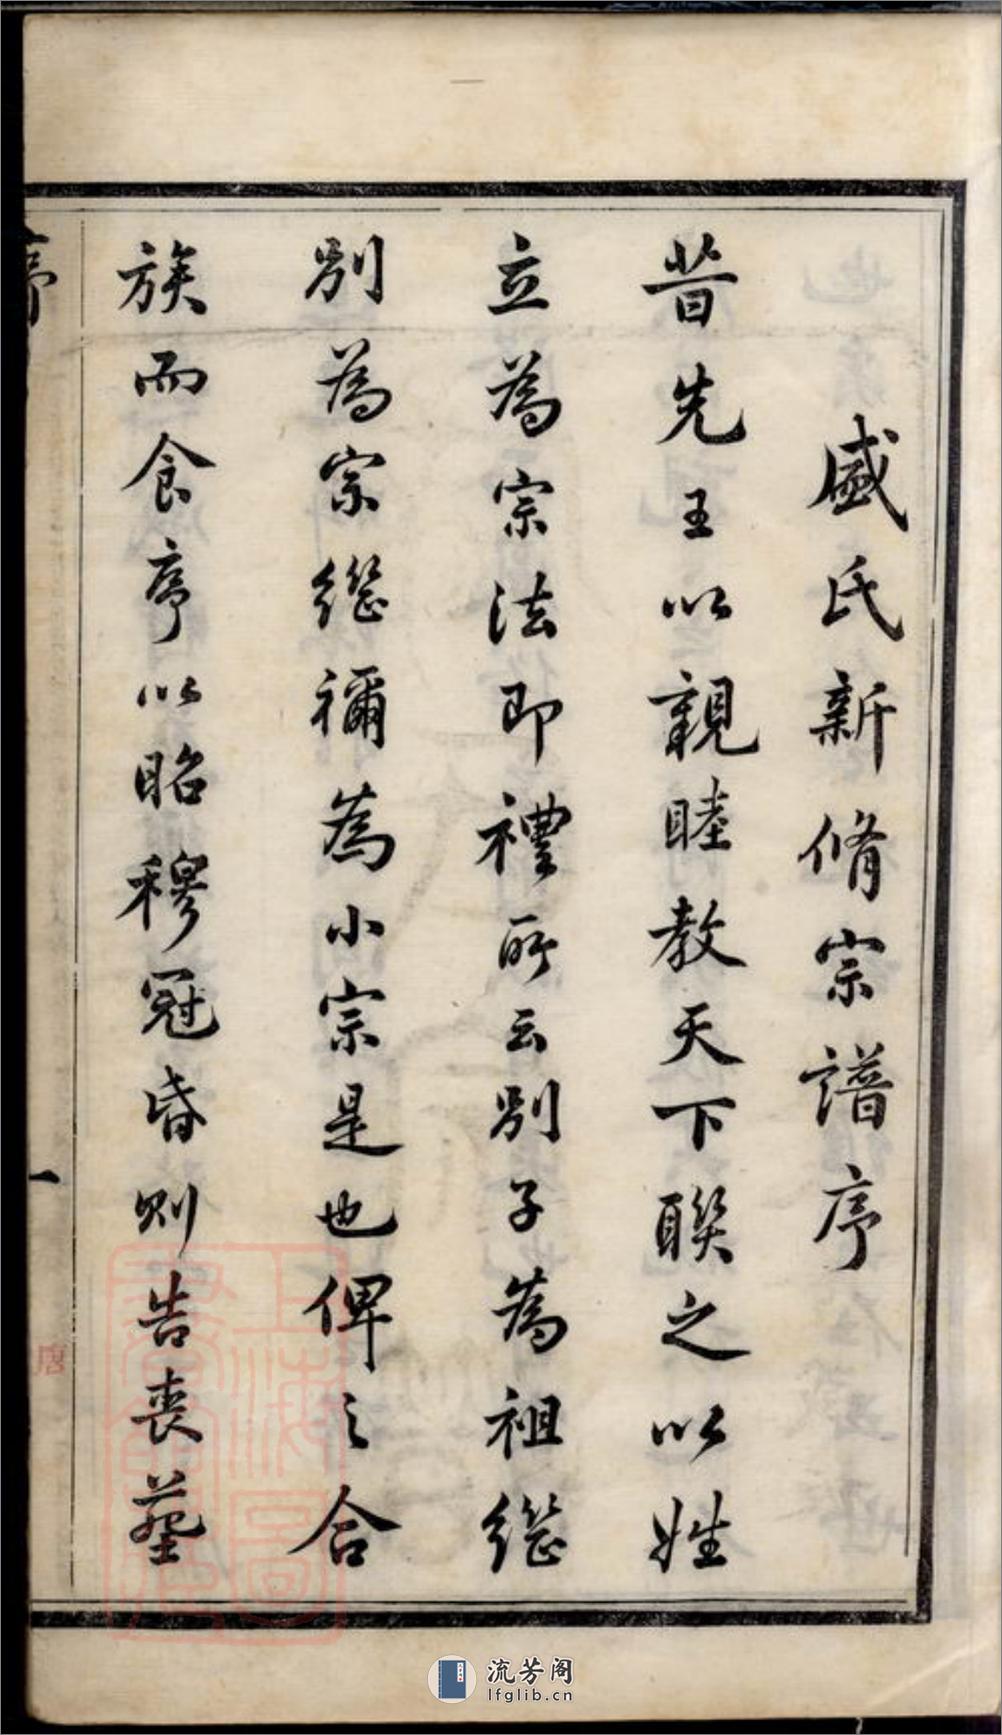 盛氏新脩宗譜序
昔先王以親睦教天下聯之以姓
立為宗法即禮所云別子為祖繼
別為宗繼禰為小宗是也俾之合
族而食序以昭穆冠昏則告喪葬
序
一
唐
上海圖書館藏
流芳阁
lfglib.cn